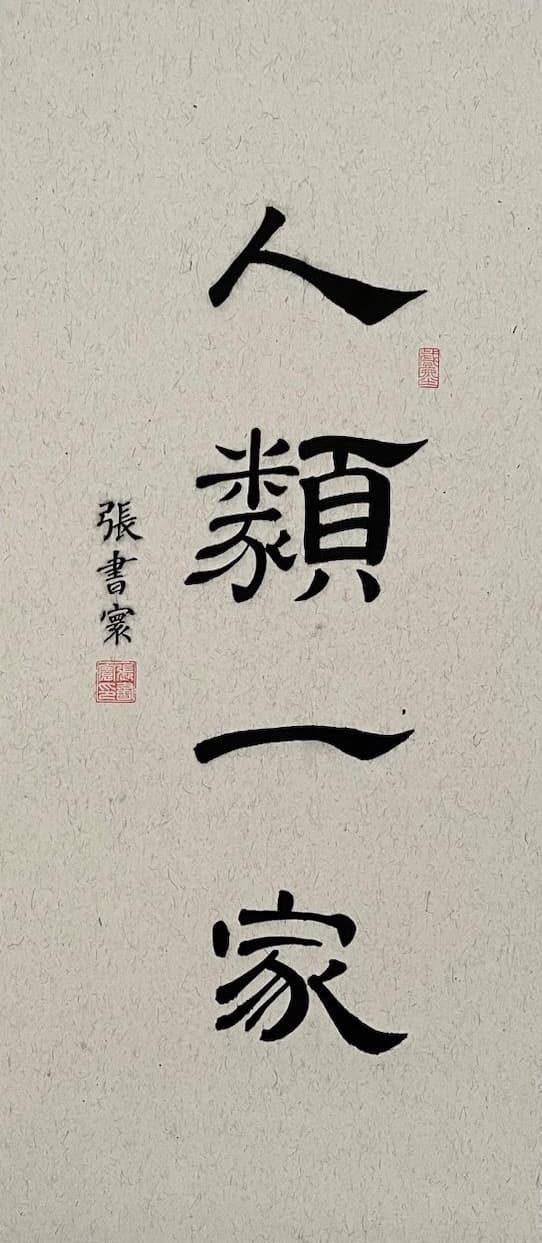 人類一家
張書寰